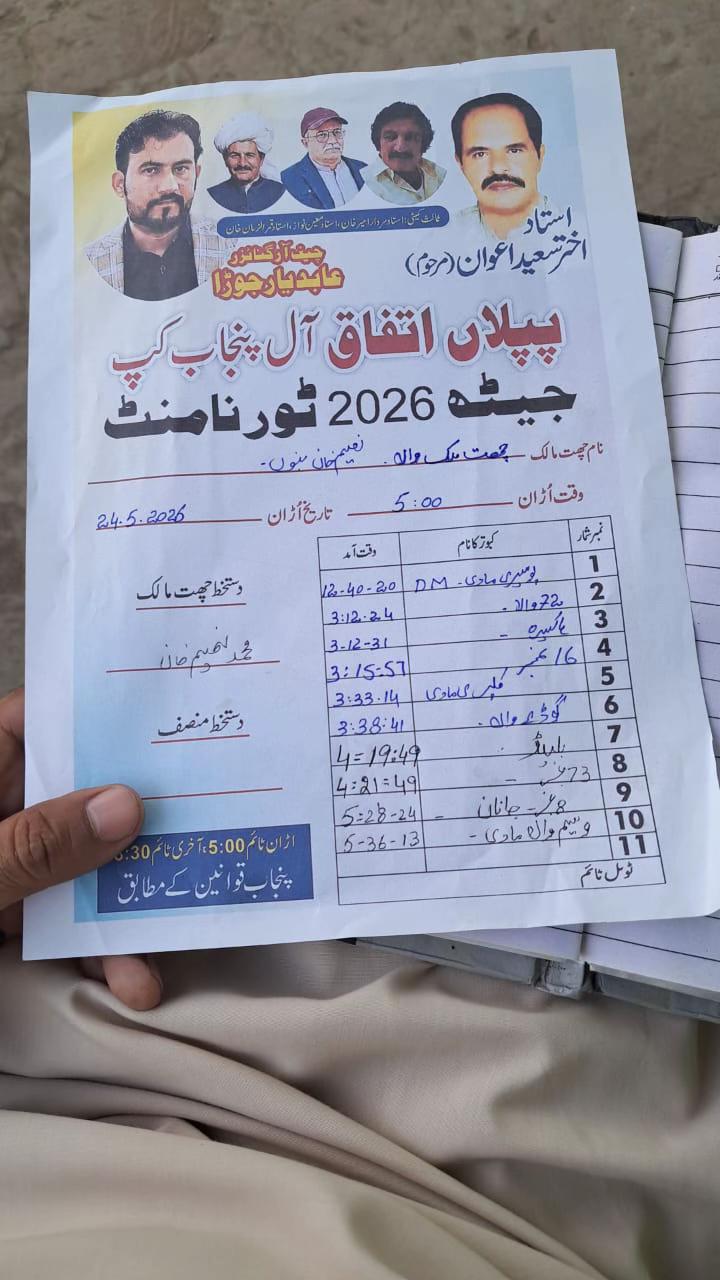 ثالث کمیٹی: استاد سردار امیر خان، استاد معین نواز، استاد قمر الزمان خان
استاد
اختر سعید اعوان (مرحوم)
چیف آرگنائزر
عابد یار جوڑا
پپلاں اتفاق آل پنجاب کپ
جیٹھ 2026 ٹورنامنٹ
نام چھت مالک چھت ملک والہ۔ نعیم خان بنوں۔
وقت اُڑان 5:00 تاریخ اُڑان 24.5.2026
نمبر شمار کبوتر کا نام وقت آمد
1 مادی۔ DM 12-40-20
2 72 والہ۔ 3:12.24
3 3-12-31
4 16 نمبر 3:15-57
5 مادی 3:33.14
6 والہ۔ 3:38:41
7 4=19:49
8 73 4:21=49
9 8 جانان - 5:28-24
10 وسیم والہ مادی - 5-36-13
11
ٹوٹل ٹائم
دستخط چھت مالک
محمد نعیم خان
دستخط منصف
اڑان ٹائم 5:00، آخری ٹائم :30
پنجاب قوانین کے مطابق